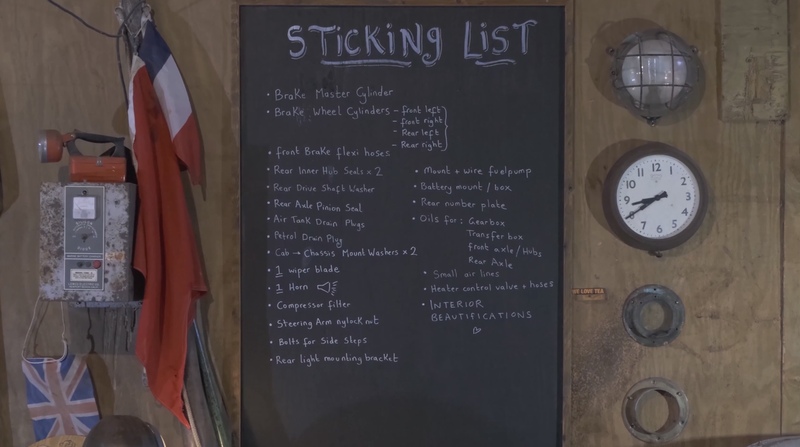 STICKING LIST
• Brake Master Cylinder
• Brake Wheel Cylinders - front left
- front right
- Rear left
- Rear right
• front Brake flexi hoses
• Rear Inner Hub Seals x 2
• Rear Drive Shaft Washer
• Rear Axle Pinion Seal
• Air Tank Drain Plugs
• Petrol Drain Plug
• Cab → Chassis Mount Washers x 2
• 1 wiper blade
• 1 Horn
• Compressor filter
• Steering Arm nylock nut
• Bolts for Side Steps
• Rear light mounting bracket
• Mount + wire fuelpump
• Battery mount / box
• Rear number plate
• Oils for: Gearbox
Transfer box
front axle / Hubs
Rear Axle
• Small air lines
• Heater control valve + hoses
• INTERIOR
BEAUTIFICATIONS
WE LOVE TEA
12
1
2
3
4
5
6
7
8
9
10
11